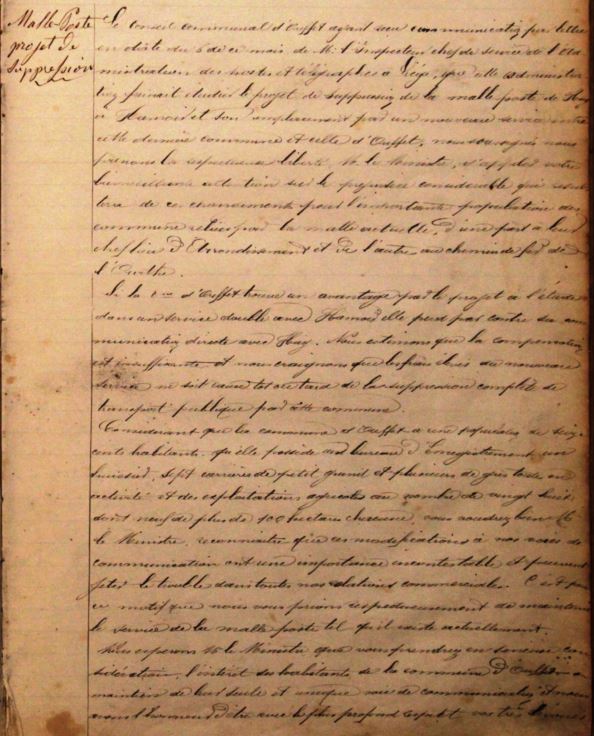 Malle Poste
projet de
suppression
Le Conseil communal d'Ouffet ayant reçu communication par lettre
en date du 6 de ce mois de Mr l'Inspecteur chef de service de l'Ad
ministration des postes et télégraphes à Liége, que cette administra
tion faisait étudier le projet de suppression de la malle poste de Huy
à Hamoir et son remplacement par un nouveau service entre
cette dernière commune et celle d'Ouffet, nous soussignés nous
prenons la respectueuse liberté Mr le Ministre, d'appeler votre
bienveillante attention sur le préjudice considérable qui résul
tera de ce changement pour l'importante population des
communes reliées par la malle actuelle, d'une part à leur
chef lieu d'Arrondissement et de l'autre au chemin de fer de
l'Ourthe.
Si la cne d'Ouffet trouve un avantage par le projet à l'étude
dans un service double avec Hamoir elle perd par contre sa com
munication directe avec Huy. Nous estimons que la compensation
est insuffisante et nous craignons que les frais du nouveau
service ne soit cause tôt ou tard de la suppression complète de
transport publique par cette commune.
Considérant que la commune d'Ouffet a une population de seize
cents habitants, qu'elle possède un bureau d'Enregistrement, un
sept carrières de petit granit et plusieurs de grès toutes en
activité et des exploitations agricoles au nombre de vingt
dont neuf de plus de 100 hectares chacune, vous voudrez bien Mr
le Ministre, reconnaitre que ces modifications à nos voies de
communication ont une importance incontestable et peuvent
jeter le trouble dans toutes nos relations commerciales. C'est pour
ce motif que nous vous prions respectueusement de maintenir
le service de la malle poste tel qu'il existe actuellement.
Nous espérons Mr le Ministre que vous prendrez en sérieuse con
sidération, l'intérêt des habitants de la commune d'Ouffet au
maintien de leur seule et unique voie de communication et nous
avons l'honneur d'être avec le plus profond respect vos très dévoués